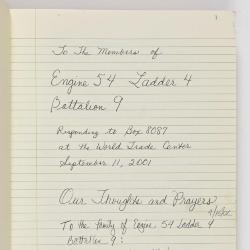 To The Members of
Engine 54 Ladder 4
Battalion 9
Responding to Box 8087
at the World Trade Center
September 11, 2001
Our Thoughts and Prayers
To the family of Engine 54 Ladder 4
Battalion 9: